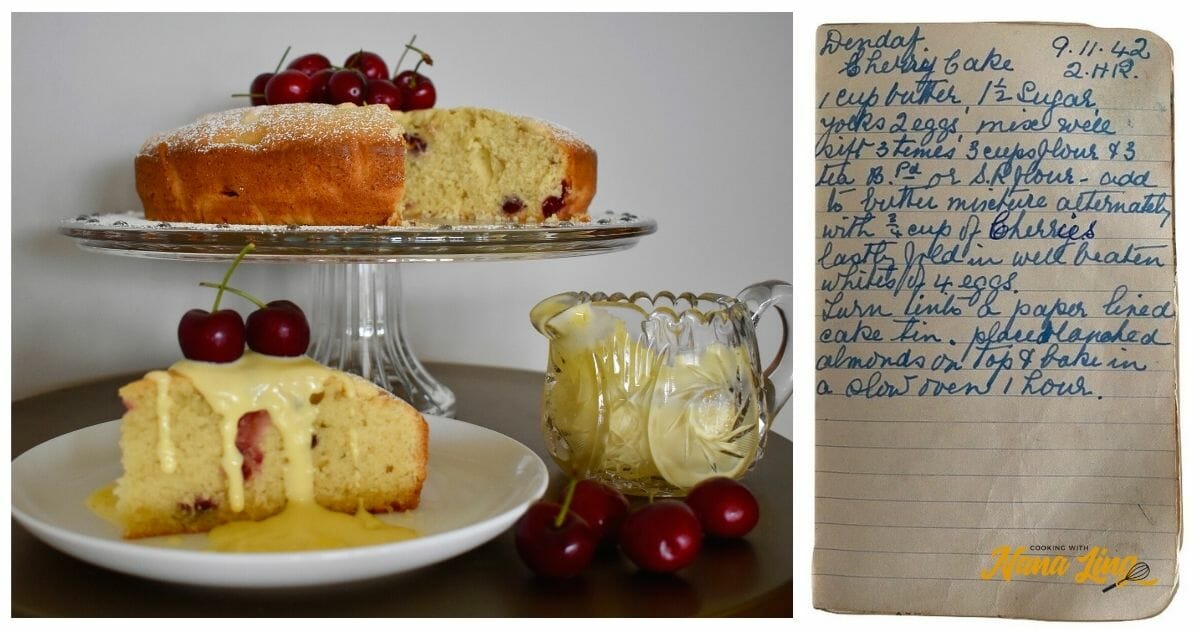 Dendaf. 9.11.42
Cherry Cake 2.H.R.
1 cup butter, 1½ Sugar,
yocks 2 eggs, mix well
sift 3 times 3 cups flour & 3
tea B. Pd or S.R flour - add
to butter mixture alternately
with ¾ cup of Cherries
lastly fold in well beaten
whites of 4 eggs.
Turn into a paper lined
cake tin. place blanched
almonds on Top & bake in
a slow oven 1 hour.
COOKING WITH
Nana Ling